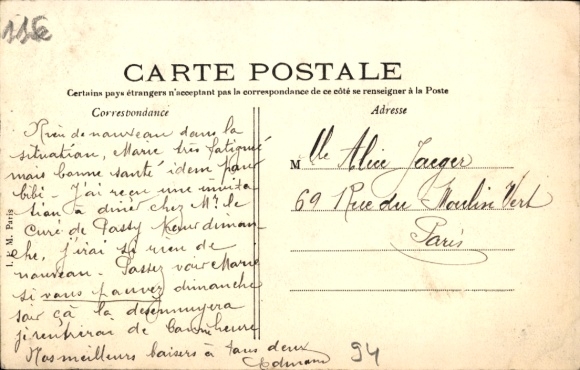 115
CARTE POSTALE
Certains pays étrangers n'acceptent pas la correspondance de ce côté se renseigner à la Poste
Correspondance
Rien de nouveau dans la
situation, Marie très fatiguée
mais bonne santé idem pour
bibi - J'ai reçu une invita
tion à dîner chez Mr le
Curé de Passy pour diman-
che, j'irai si rien de
nouveau - Passez voir Marie
si vous pouvez dimanche
soir çà la desennuyera
je rentrerai de bonne heure
Nos meilleurs baisers à tous deux
Edmond
Adresse
Mlle Alice Jaeger
69 Rue du Moulin Vert
Paris
I. P. M. Paris
94